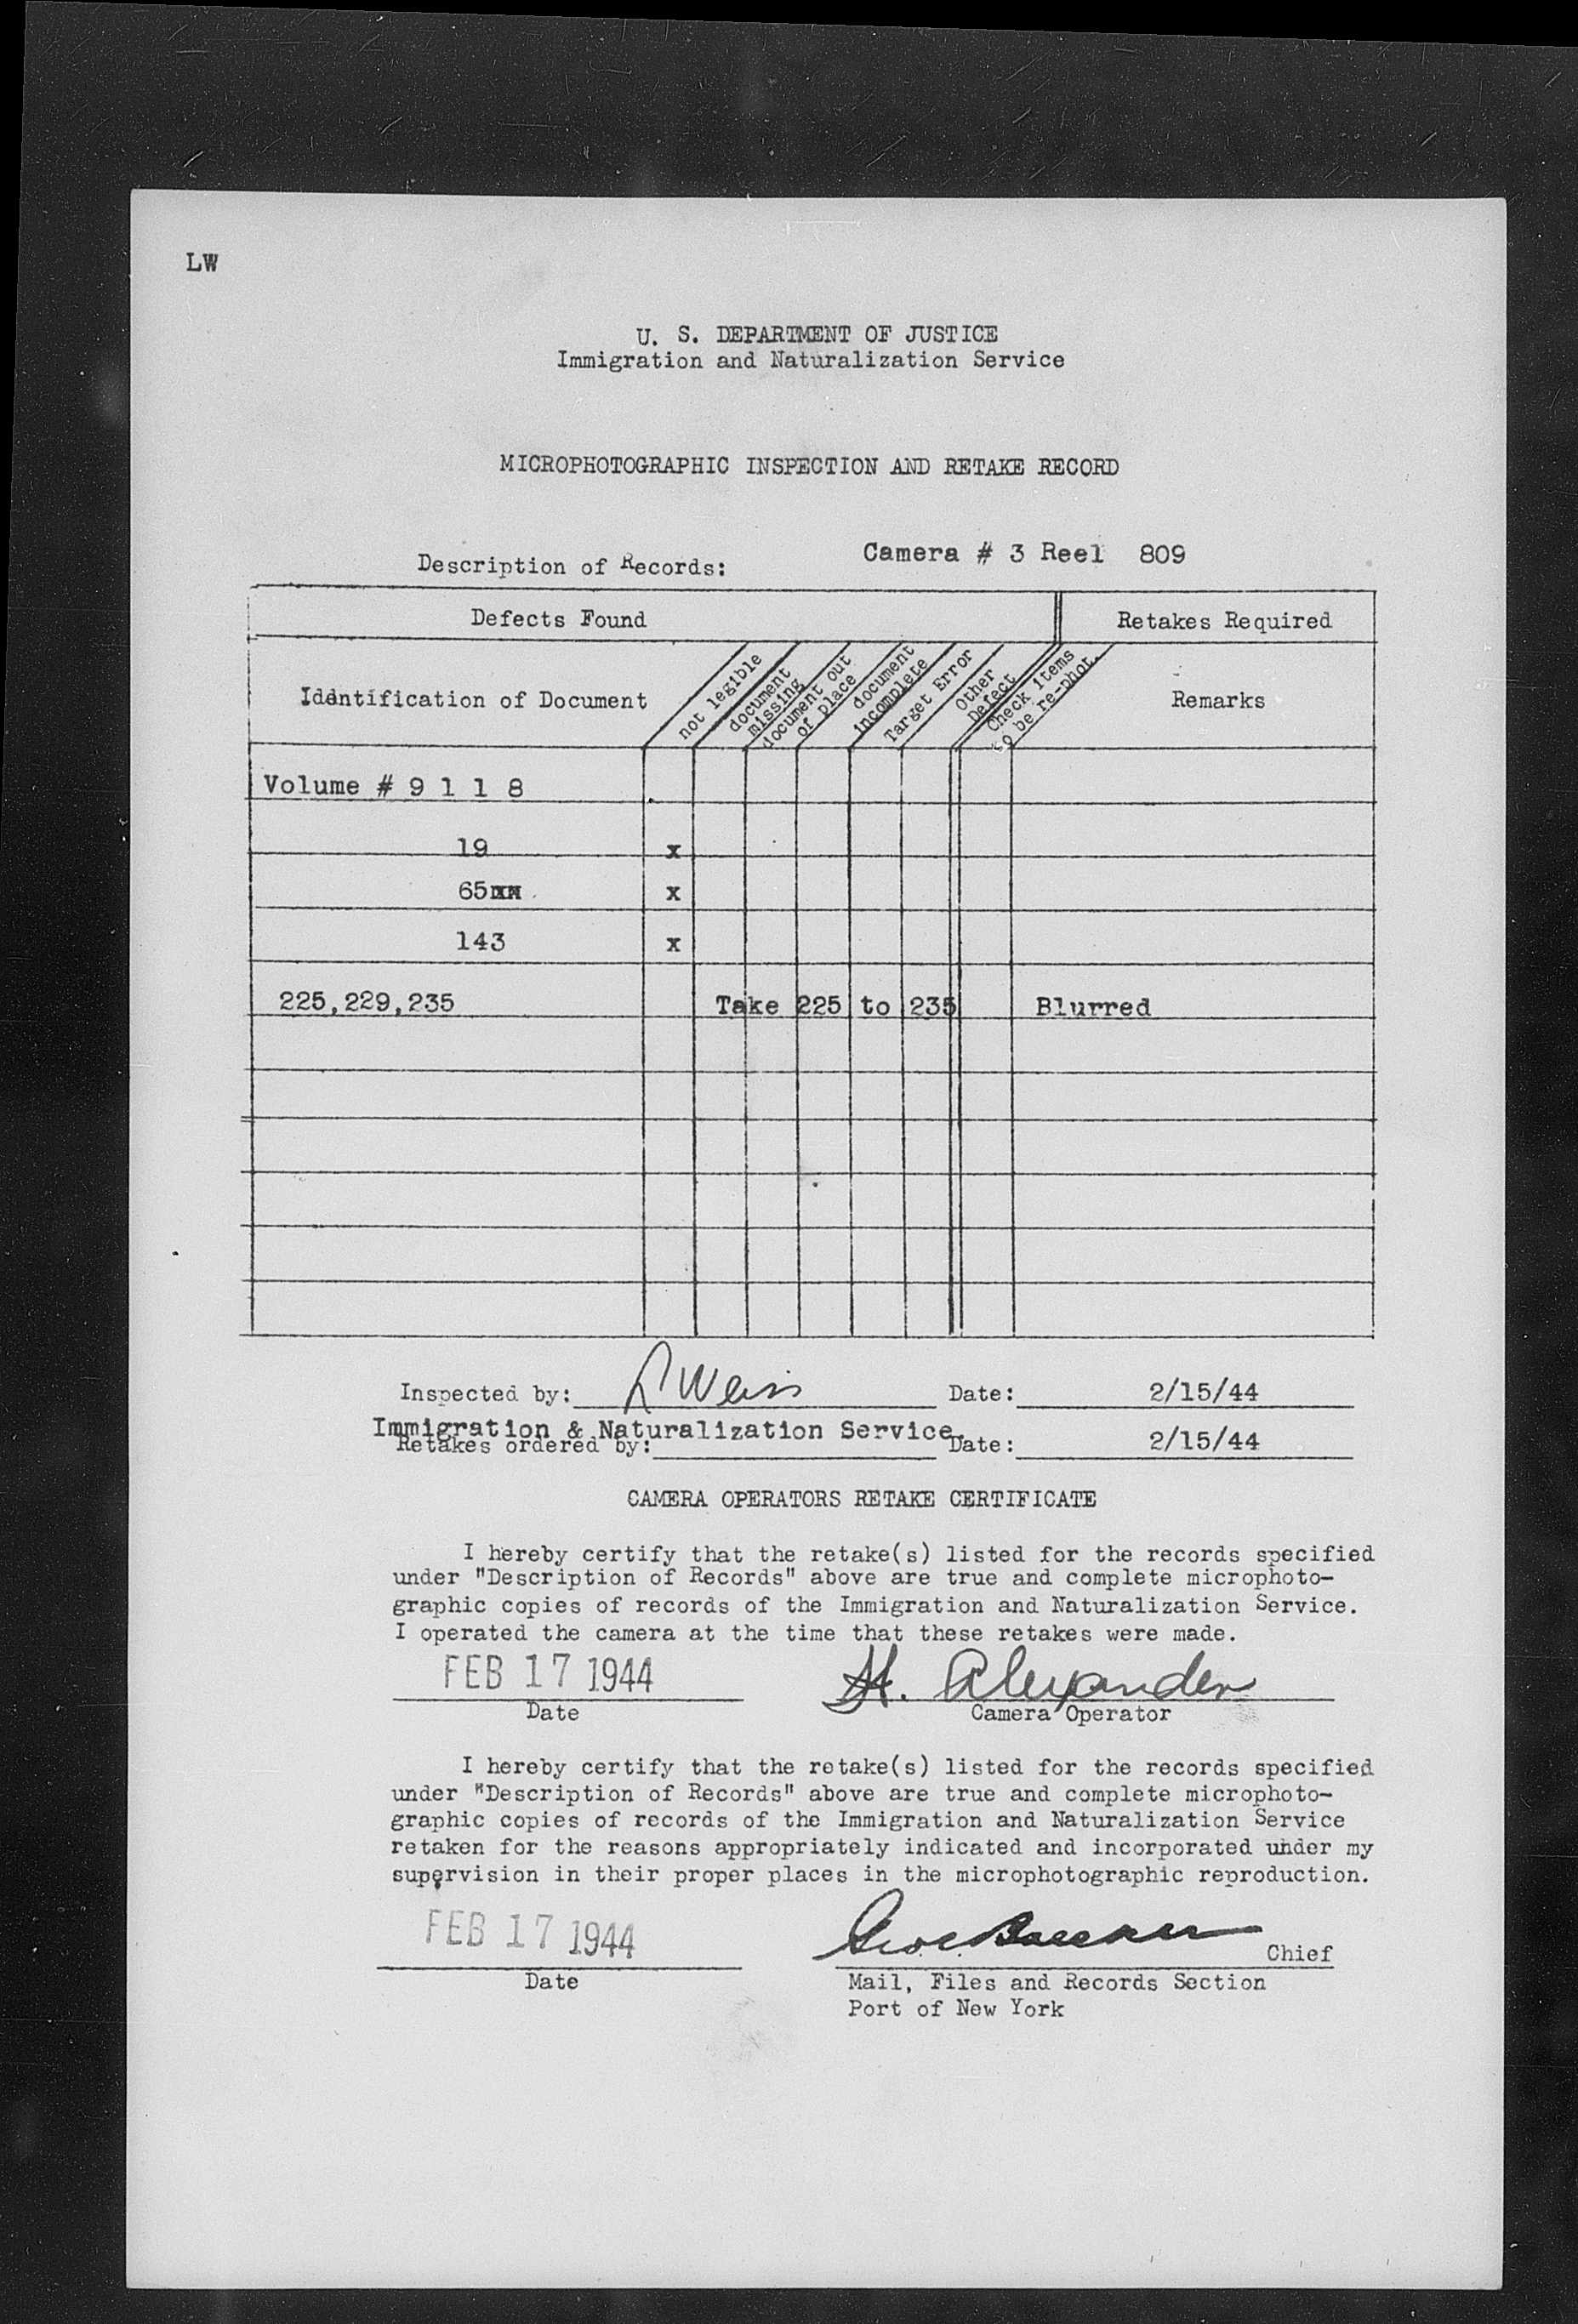 LW
U. S. DEPARTMENT OF JUSTICE
Immigration and Naturalization Service
MICROPHOTOGRAPHIC INSPECTION AND RETAKE RECORD
Description of Records: Camera # 3 Reel 809
Defects Found Retakes Required
Identification of Document not legible document missing document out of place document incomplete Target Error Other Defect Check items to be re-phot. Remarks
Volume # 9 1 1 8
19 x
65 x
143 x
225,229,235 Take 225 to 235 Blurred
Inspected by: L Weiss Date: 2/15/44
Immigration & Naturalization Service.
Retakes ordered by: Date: 2/15/44
CAMERA OPERATORS RETAKE CERTIFICATE
I hereby certify that the retake(s) listed for the records specified
under "Description of Records" above are true and complete microphoto-
graphic copies of records of the Immigration and Naturalization Service.
I operated the camera at the time that these retakes were made.
FEB 17 1944 H. Alexander
Date Camera Operator
I hereby certify that the retake(s) listed for the records specified
under "Description of Records" above are true and complete microphoto-
graphic copies of records of the Immigration and Naturalization Service
retaken for the reasons appropriately indicated and incorporated under my
supervision in their proper places in the microphotographic reproduction.
FEB 17 1944 Chief
Date Mail, Files and Records Section
Port of New York